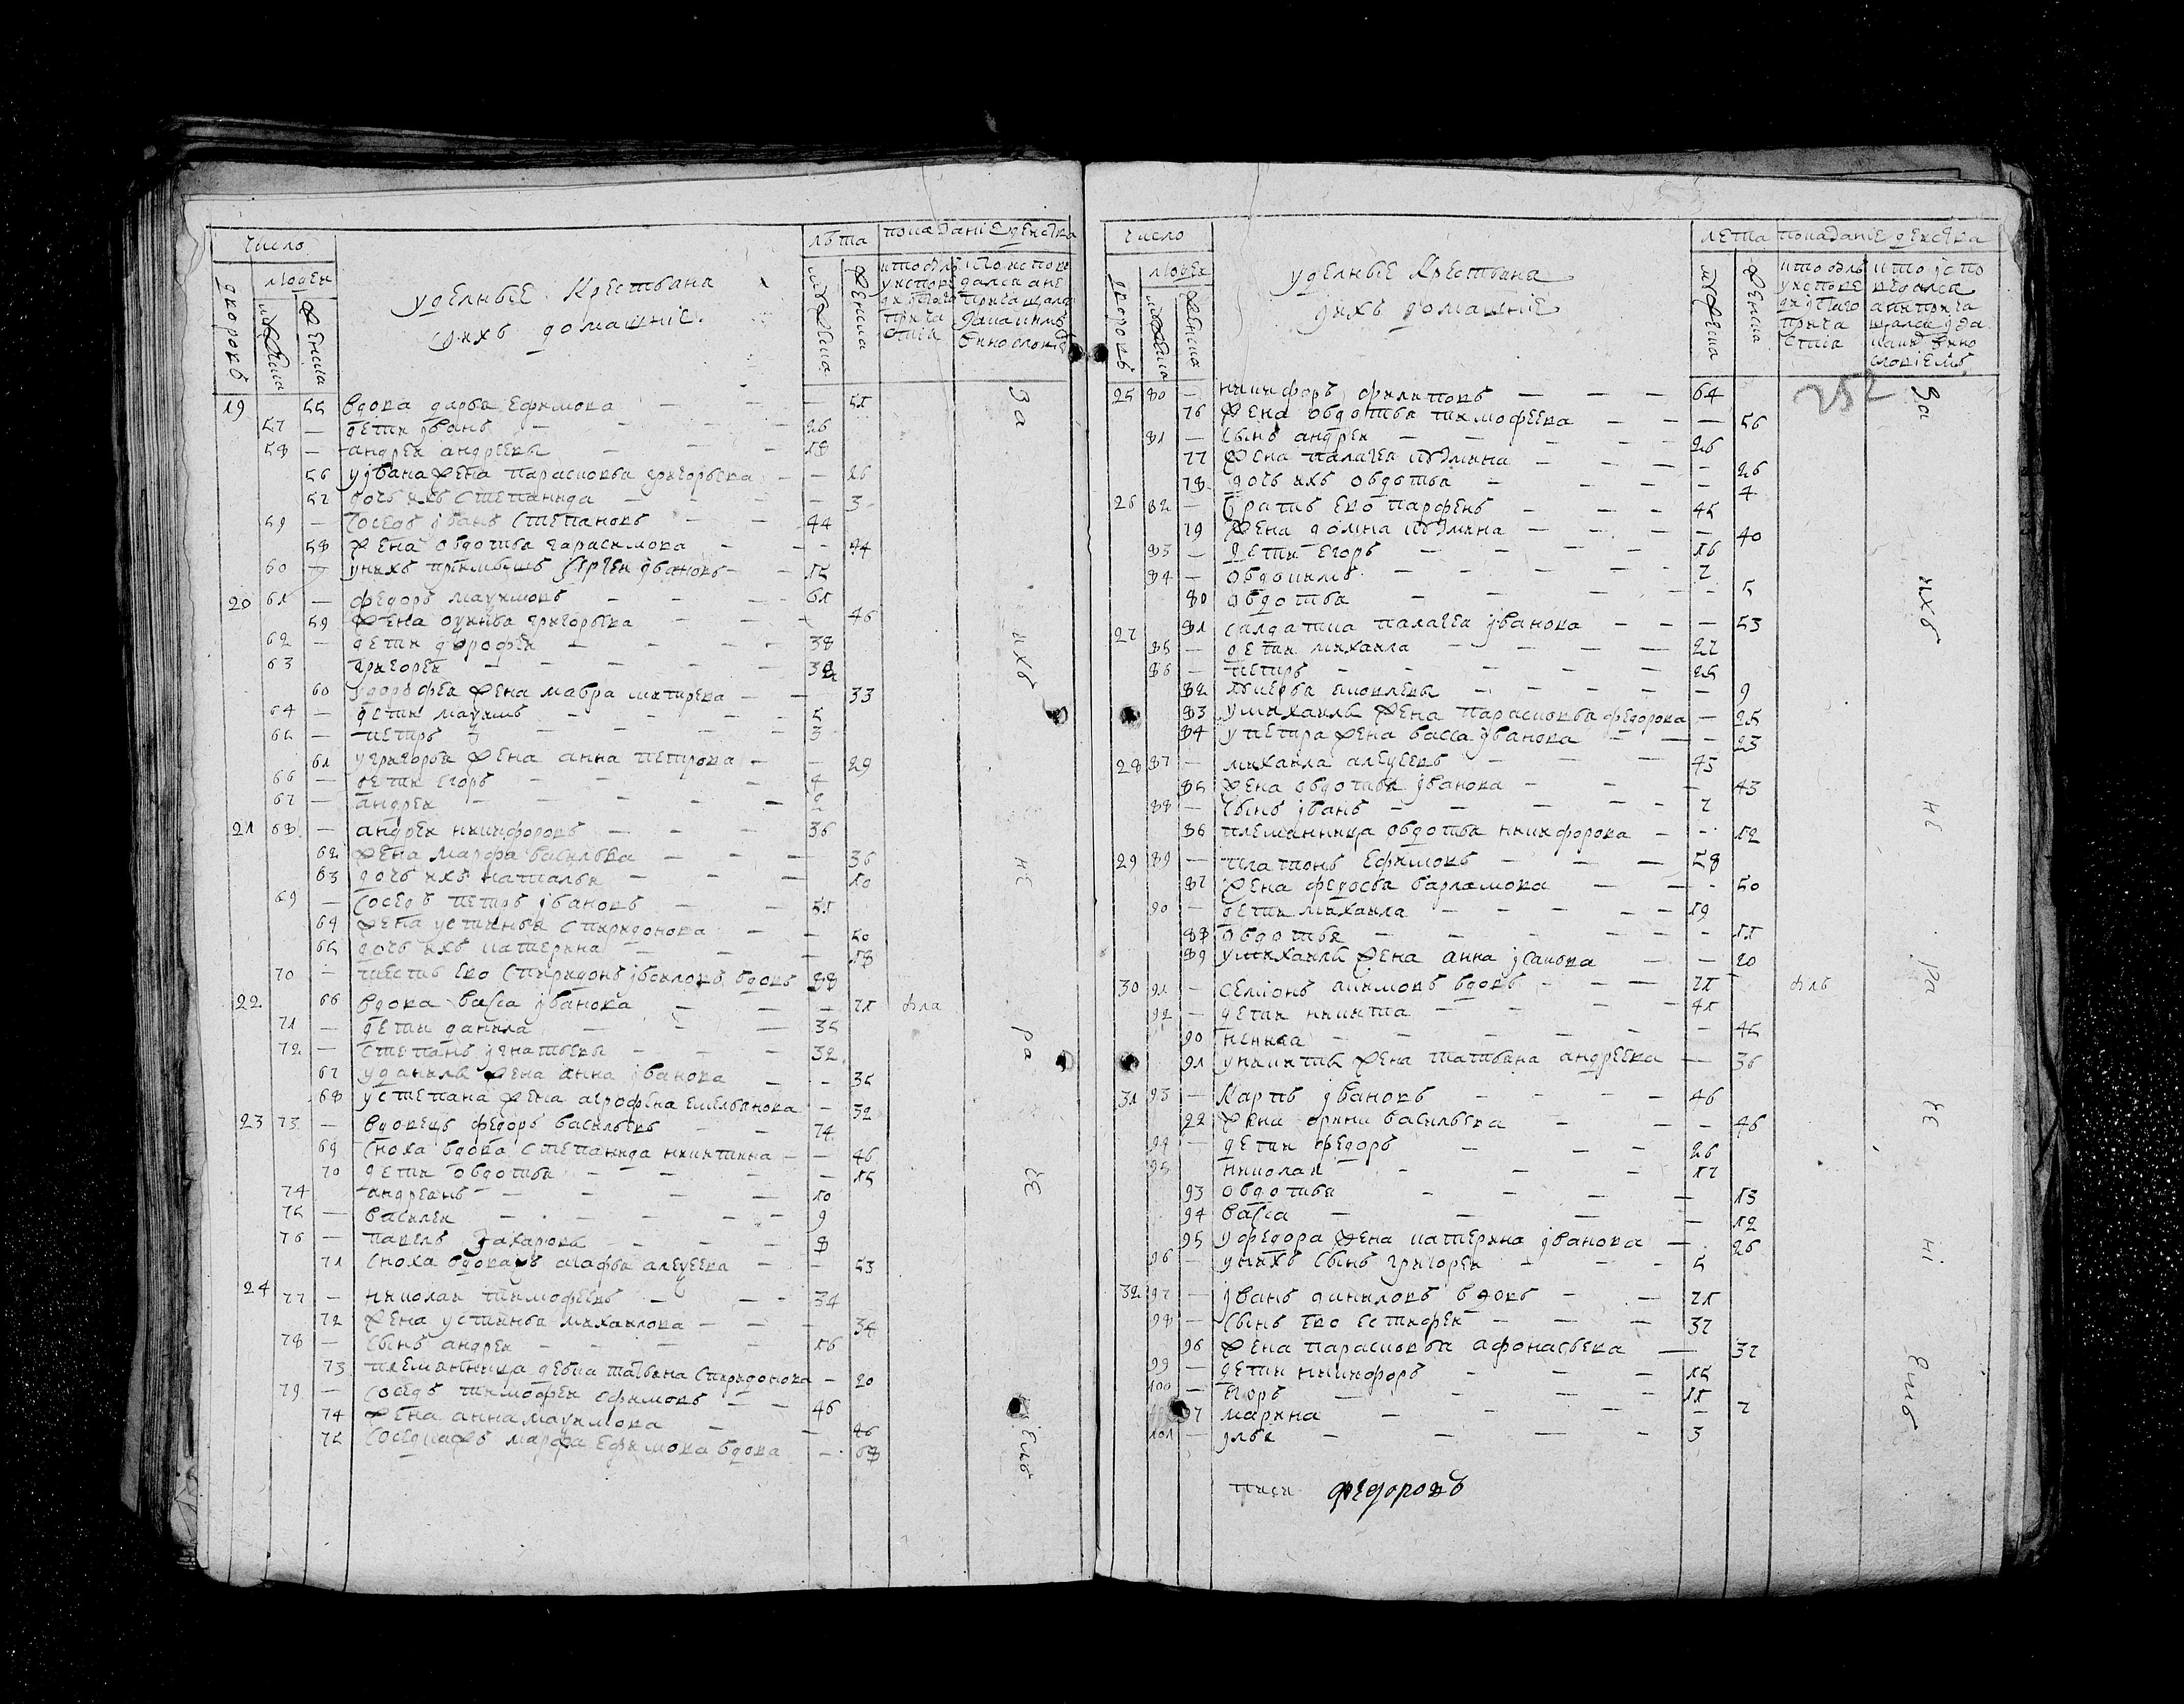 число
людей
дворовъ
мужеска
женска
удельные Крестьяна
ихъ домашніе
лѣта
мужеска
женска
показаніе действа
19 55 вдова дарья Ефимова — 51
57 — дети jванъ — 26
58 — андреи андреевы 18
56 у jвана жена парасковья григорьева — 26
57 дочь ихъ степанида — 3
59 — соседъ jванъ степановъ — 44
58 жена овдотья гарасимова — 44
60 — у нихъ приимышъ сергеи jвановъ — 15
20 61 — федоръ маѯимовъ — 61
59 жена оѯинья григорьева — 46
62 — дети дорофеи — 38
63 григореи —
60 у дорофеа жена мавра митирева — 33
64 — дети маѯимъ — 5
65 — петиръ — 3
61 у григорья жена анна петрова — 29
66 — дети егоръ — 4
67 — андреи — 2
21 68 — андреи никифоровъ — 36
62 жена марфа васильева — 36
63 дочь ихъ наталья — 10
69 — соседъ петиръ jвановъ — 51
64 жена устинья спиридонова — 50
65 дочь ихъ катерина — 18
70 — тесть ево спиридонъ jвановъ вдовъ 88
22 66 вдова васса jванова — 71
71 — дети данила — 35
72 — степанъ jгнатьевы — 32
67 у данилы жена анна jванова — 35
68 у степана жена агрофена емельянова — 32
23 73 — вдовецъ федоръ васильевъ — 74
69 сноха вдова степанида никитина — 46
70 дети овдотья — 15
74 андреянъ — 10
75 — василеи — 9
76 — павелъ захаровы — 8
71 сноха вдова агафья алеѯеева — 53
24 77 — николаи тимофеевъ — 34
72 жена устинья михаилова — 34
78 — сынъ андреи — 16
73 племянница девка татьяна спиридонова — 20
79 — соседъ тимофеи ефимовъ — 46
74 жена анна маѯимова — 46
75 марфа ефимова вдова — 68
за
ихъ
не
ра
де
число
людей
дворовъ
мужеска
женска
удельные Крестьяна
ихъ домашніе
лета
мужеска
женска
показаніе действа
252
25 80 — никифоръ филиповъ — 64
76 жена овдотья тимофеева — 56
81 — сынъ андреи — 26
77 жена палагеа кузмина — 26
78 дочь ихъ овдотья — 4
26 82 — братъ ево парфенъ — 45
79 жена домна кузмина — 40
83 — дети егоръ — 16
84 — овдокимъ — 7
80 овдотья — 5
27 81 салдатка палагеа jванова — 53
85 — дети михаила — 27
86 — петиръ — 25
82 яковлевы — 9
83 у михаилы жена парасковья федорова — 25
84 у петира жена васса jванова — 23
28 87 — михаила алеѯеевъ — 45
85 жена овдотья jванова — 43
88 — сынъ jванъ — 7
86 племянница овдотья никифорова — 12
29 89 — платонъ ефимовъ — 58
87 жена федосья варламова — 50
90 — дети михаила — 19
88 овдотья — 11
89 у михаилы жена анна jванова — 20
30 91 — семіонъ акимовъ вдовъ — 71
92 — дети никита — 41
90 — 45
91 у никиты жена татьяна андреева — 36
31 93 — Карпъ jвановъ — 46
92 жена орина васильева — 46
94 — дети федоръ — 26
95 николаи — 17
93 овдотья — 13
94 васса — 12
95 у федора жена катерина jванова — 26
96 — у нихъ сынъ григореи — 5
32 97 — jванъ даниловъ вдовъ — 71
98 — сынъ ево естифеи — 37
96 жена парасковья афонасьева — 37
99 — дети никифоръ — 15
100 — егоръ — 11
97 марина — 7
101 — 3
за
ихъ
не
ра
де
ні
федоровъ